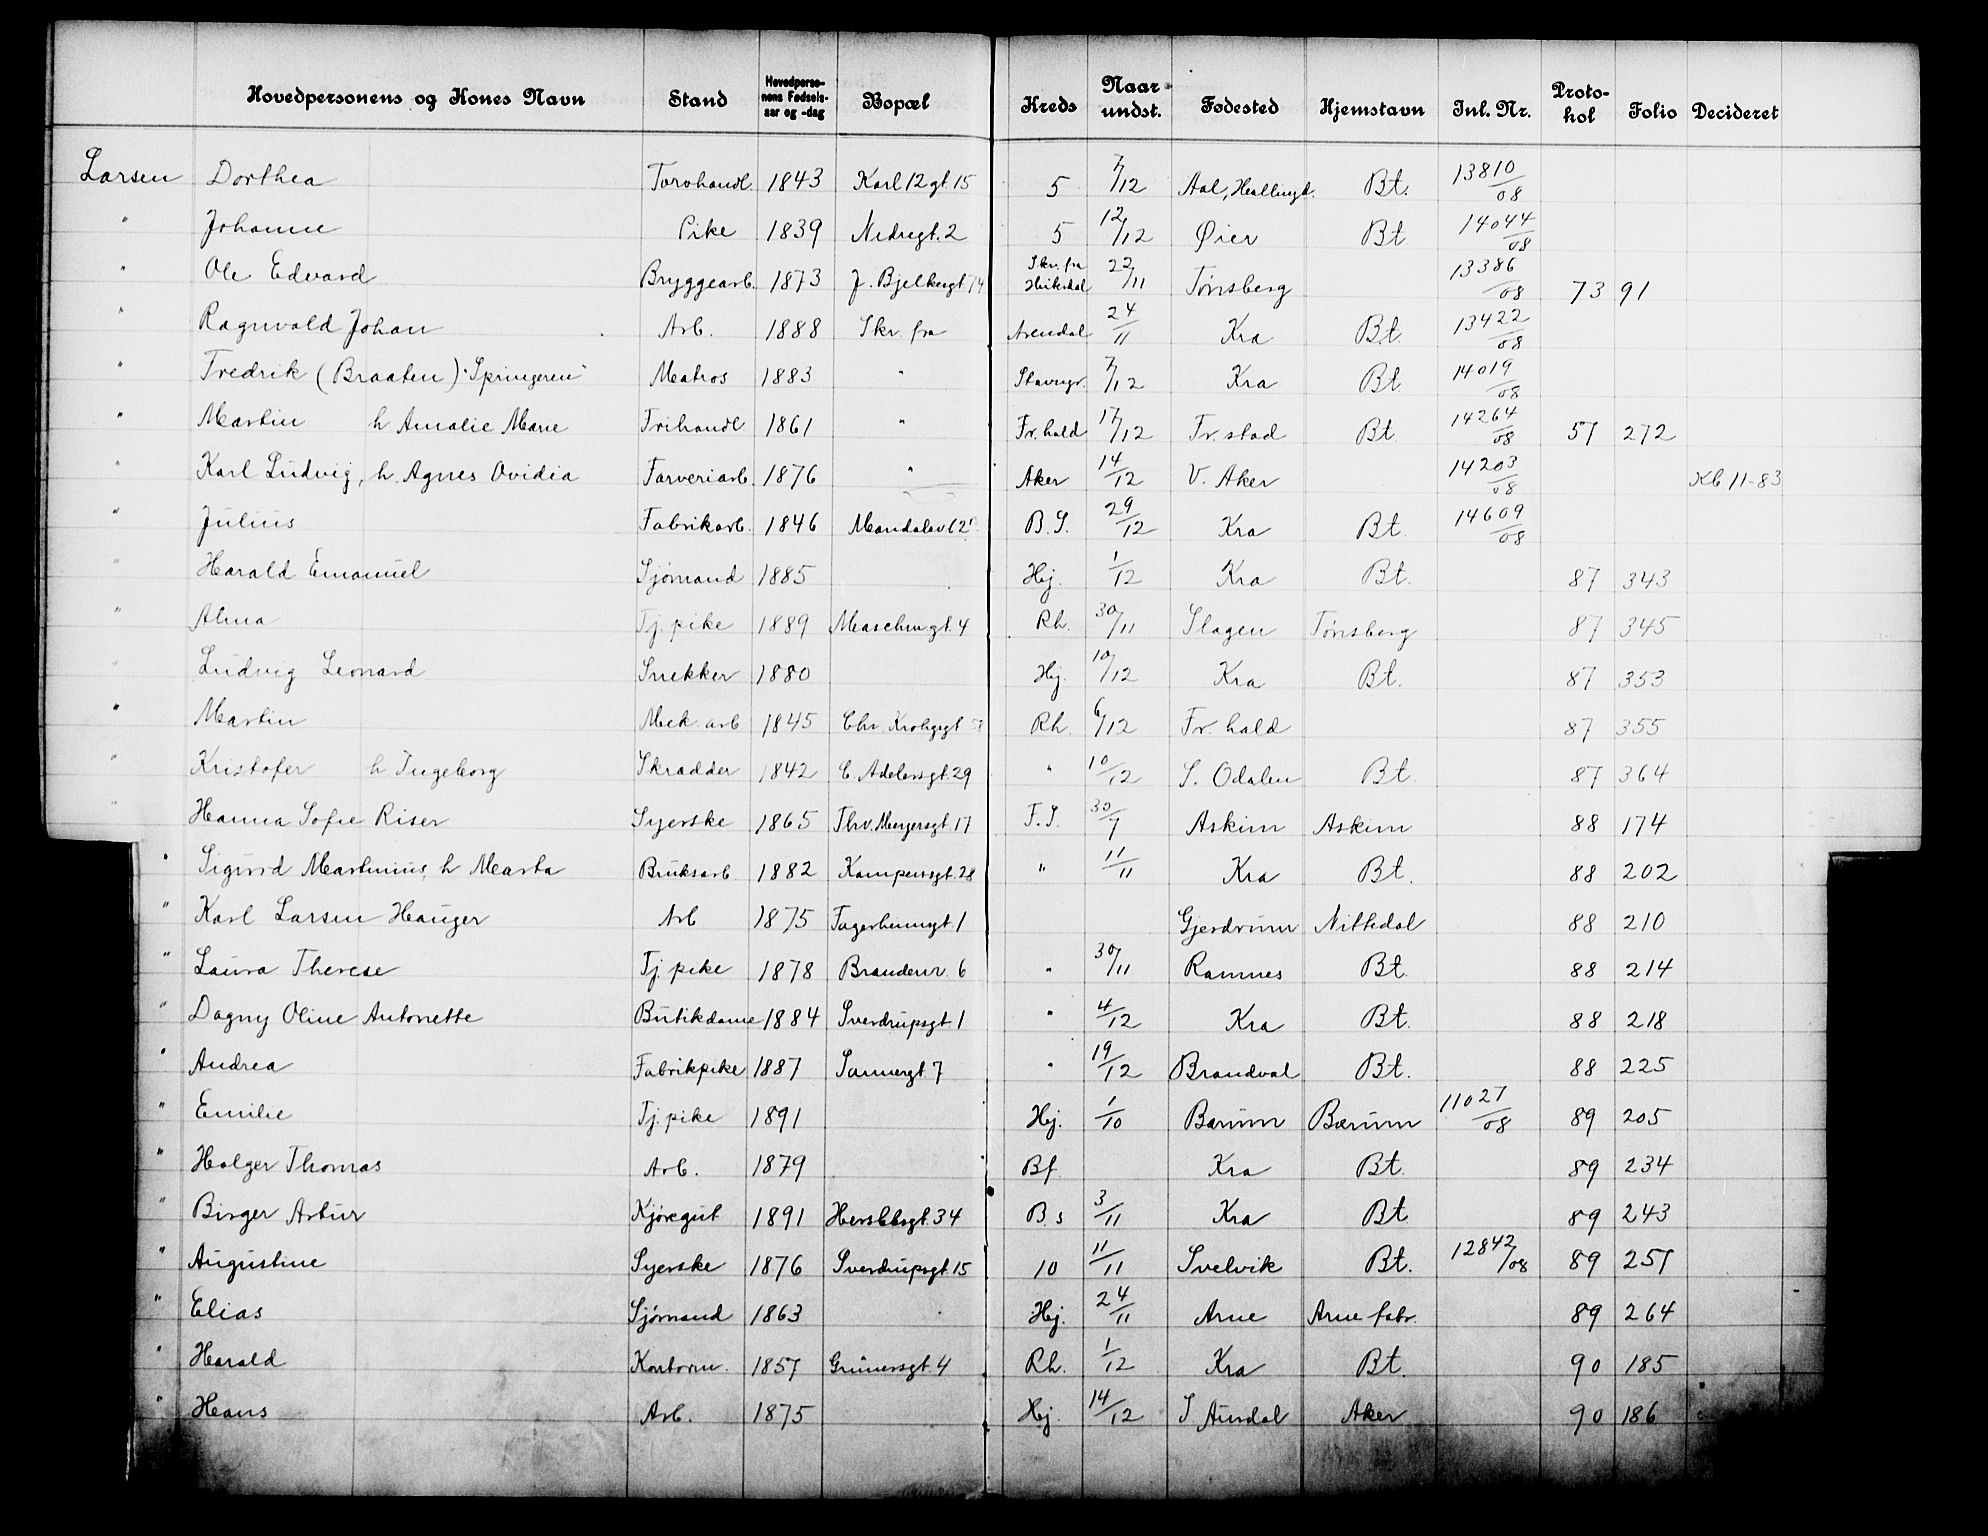 Hovedpersonens og Kones Navn Stand Hovedperso-nens Fødsels-aar og -dag Bopæl Kreds Naar undst. Fødested Hjemstavn Inl. Nr. Proto-kol Folio Decideret
Larsen Dorthea Torvhandl. 1843 Karl 12 gt. 15 5 7/12 Aal, Hallingd. Bt. 13810/08
" Johanne Pike 1839 Nedregt. 2 5 12/12 Øier Bt 14044/08
" Ole Edvard Bryggearb. 1873 J. Bjelkesgt. 74 Skr. fra 22/11 Tønsberg 13386/08 73 91
" Ragnvald Johan Arb. 1888 Skr. fra Arendal 24/11 Kra Bt. 13422/08
" Fredrik (Braaten) "Springeren" Matros 1883 " Stavngr. 7/12 Kra Bt 14019/08
" Martin h Amalie Marie Frihandl 1861 " Fr. hald 17/12 Fr. stad Bt. 14264/08 57 272
" Karl Ludvig, h. Agnes Ovidia Farveriarb. 1876 " Aker 14/12 V. Aker 14203/08 Kb. 11-83
" Julius Fabrikarb. 1846 B.S. 29/12 Kra Bt. 14609/08
" Harald Emanuel Sjømand 1885 Hej. 1/12 Kra Bt. 87 343
" Alma Tj. pike 1889 Maschmgt. 4 Rh. 30/11 Slagen Tønsberg 87 345
" Ludvig Leonard Snekker 1880 Hej. 10/12 Kra Bt. 87 353
" Martin Mek. arb 1845 Chr. Krohgsgt Rh. 6/12 Fr. hald 87 355
" Kristofer h Ingeborg Skrædder 1842 C. Adelersgt. 29 " 10/12 S. Odalen Bt. 87 364
" Hanna Sofie Riser Syerske 1865 Thv. Meyersgt. 17 F.S. 30/7 Askim Askim 88 174
" Sigurd Martinius, h Marta Bruksarb 1882 Kampensgt. 28 " 11/11 Kra Bt. 88 202
" Karl Larsen Hauger Arb 1875 Fagerheimgt. 1 Gjerdrum Nittedal 88 210
" Laura Therese Tj. pike 1878 Brandenr. 6 " 30/11 Ramnes Bt. 88 214
" Dagny Oline Antonette Butikdame 1884 Sverdrupsgt. 1 " 4/12 Kra Bt. 88 218
" Andrea Fabrikpike 1887 Sannergt 7 " 19/12 Brandval Bt. 88 225
" Emilie Tj. pike 1891 Hej. 1/10 Bærum Bærum 11027/08 89 205
" Holger Thomas Arb. 1879 Bf. Kra Bt. 89 234
" Birger Artur Kjøregut 1891 Herslebsgt. 34 B.s 3/11 Kra Bt 89 243
" Augustine Syerske 1876 Sverdrupsgt. 15 10 11/11 Svelvik Bt. 12842/08 89 257
" Elias Sjømand 1863 Hej. 24/11 Arne Arne fabr. 89 264
" Harald Kontorm. 1857 Grünersgt. 4 Rh. 1/12 Kra Bt. 90 185
" Hans Arb. 1875 Hej. 14/12 S Aurdal Aker 90 186